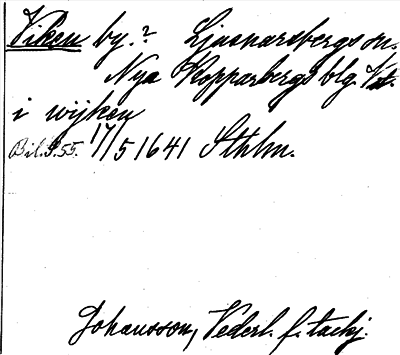 Viken by.? Ljusnarsbergs sn.
Nya Kopparbergs blg. Vst.
i wijken
Bil. S. 55. 17/5 1641 Sthlm.
Johansson, Vederl. f. tackj.